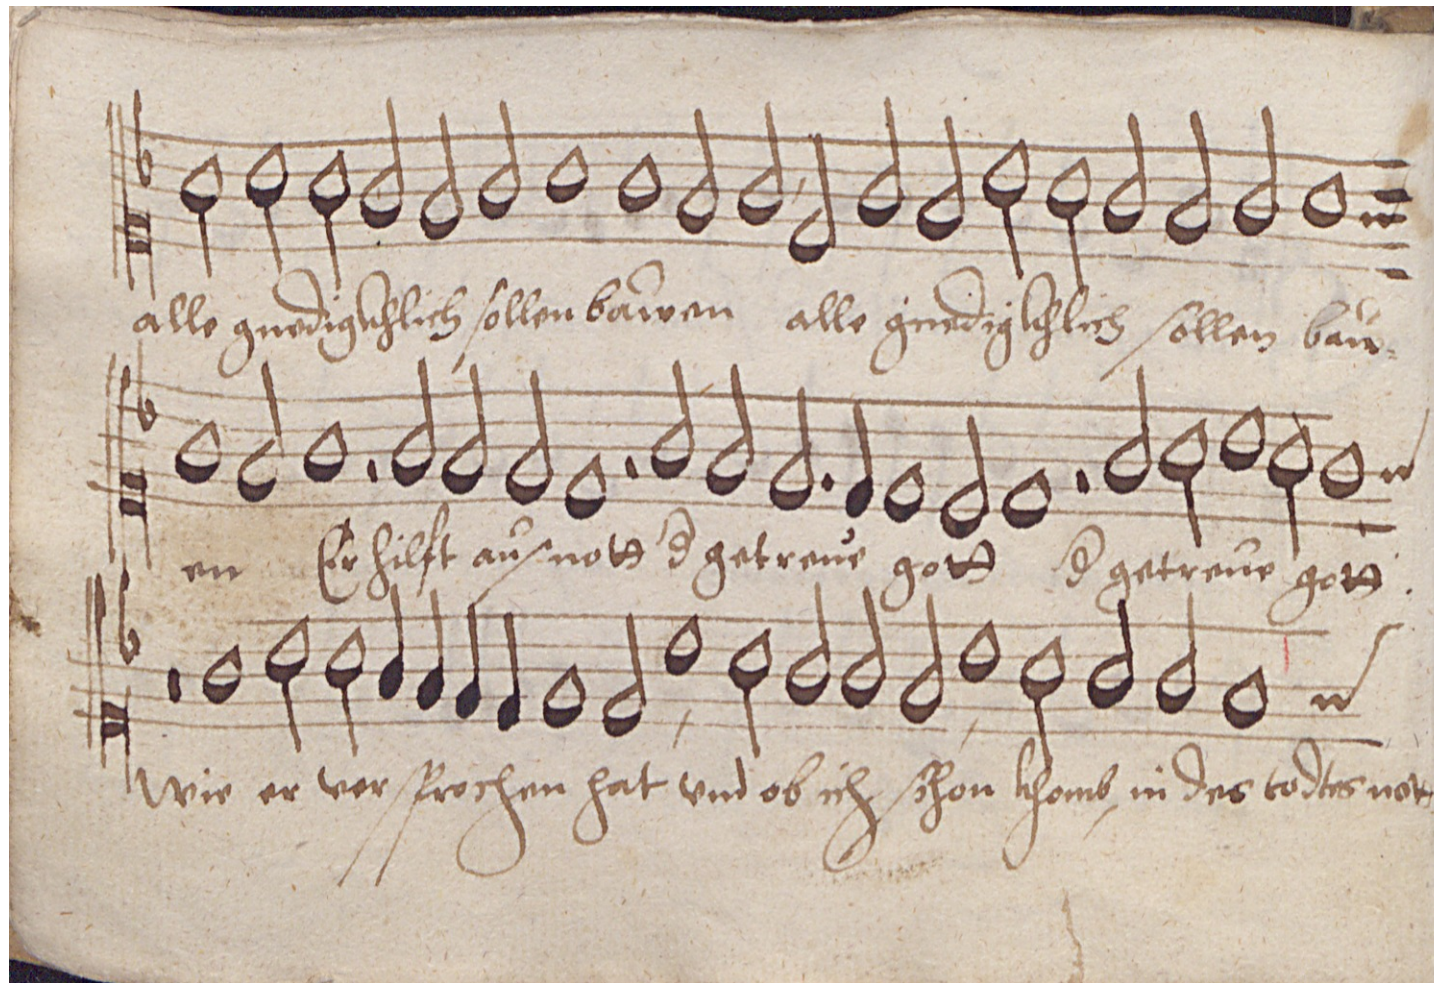 alle gnedigkhlich sollen bawen alle gnedigkhlich sollen baw-
en Er hilft aus nott d getreue gott d getreue gott .
Wie er versprochen hat vnd ob ich schon khomb in des todtes nott